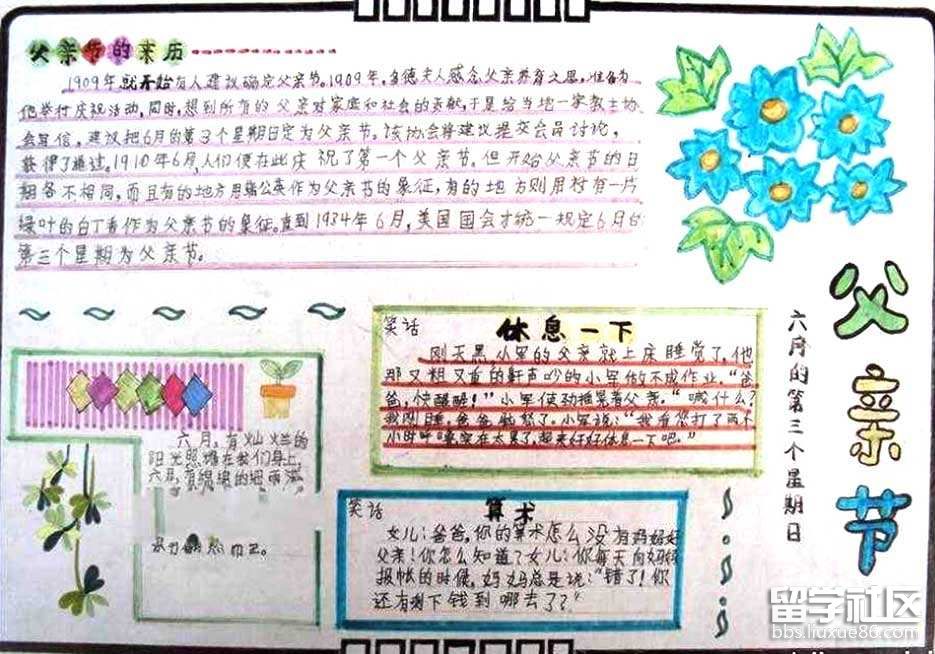 父亲节的来历
1909年就开始有人建议确定父亲节。1909年,多德夫人感念父亲养育之恩,准备为
他举行庆祝活动,同时,想到所有的父亲对家庭和社会的贡献,于是给当地一家教士协
会写信,建议把6月的第3个星期日定为父亲节。该协会将建议提交会员讨论,
获得了通过。1910年6月,人们便在此庆祝了第一个父亲节。但开始父亲节的日
期各不相同,而且有的地方用蒲公英作为父亲节的象征,有的地方则用衬有一片
绿叶的白丁香作为父亲节的象征。直到1934年6月,美国国会才统一规定6月的
第三个星期为父亲节。
父亲节
六月的第三个星期日
笑话
休息一下
刚天黑,小军的父亲就上床睡觉了,他
那又粗又重的鼾声吵的小军做不成作业。“爸
爸,快醒醒!”小军使劲摇晃着父亲。“喊什么?
我刚睡。爸爸 您了。小军说:“我看您打了两个
小时呼噜实在太累了,起来好好休息一下吧。”
六月,有灿烂的
阳光照耀在我们身上,
六月,有绵绵的细雨
笑话
算术
女儿:爸爸,你的算术怎么没有妈妈好
父亲:你怎么知道?女儿:你每天向妈妈
报帐的时候,妈妈总是说:“错了!你
还有剩下钱到哪去了?”
留学社区
bbs.liuxue86.com